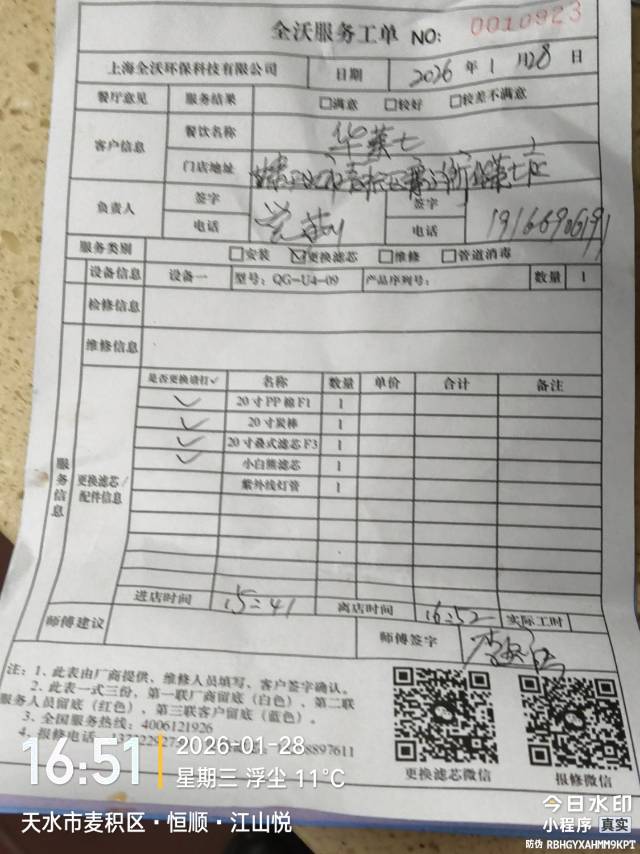 全沃服务工单 NO: 0010923
上海全沃环保科技有限公司 日期 2026 年 1 月 28 日
餐厅意见 服务结果 □满意 □较好 □较差不满意
客户信息 餐饮名称 华莱士
门店地址
负责人 签字 签字
电话 电话 19166906191
服务类别 □安装 ☑更换滤芯 □维修 □管道消毒
设备信息 设备一 型号：QG-U4-09 产品序列号： 数量 1
检修信息
维修信息
服务信息 更换滤芯/配件信息
是否更换请打✓ 名称 数量 单价 合计 备注
✓ 20寸PP棉F1 1
✓ 20寸炭棒 1
✓ 20寸叠式滤芯F3 1
✓ 小白熊滤芯 1
紫外线灯管 1
进店时间 15:41 离店时间 16:52 实际工时
师傅建议 师傅签字
注：1、此表由厂商提供、维修人员填写、客户签字确认。
2、此表一式三份，第一联厂商留底（白色）、第二联
服务人员留底（红色）、第三联客户留底（蓝色）。
3、全国服务热线：4006121926
4、报修电话
8897611
更换滤芯微信 报修微信
16:51 2026-01-28
星期三 浮尘 11℃
天水市麦积区·恒顺·江山悦
今日水印
小程序 真实
防伪 RBHGYXAHMM9KPT